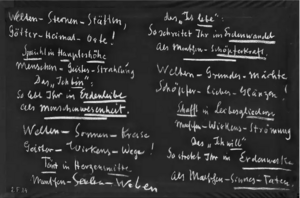 Welten-Sternen-Stätten,
Götter-Heimat-Orte!
Spricht in Haupteshöhe
Menschen-Geistes-Strahlung
Das „Ich bin":
So lebt Ihr im Erdenleibe
als Menschenwesenheit.
Welten-Sonnen-Kreise
Geister-Wirkens-Wege!
Tönt in Herzensmitte
Menschen-Seelen-Weben
das „Ich lebe":
So schreitet Ihr im Erdenwandel
als Menschen-Schöpferkraft.
Welten-Grundes-Mächte
Schöpfer-Liebes-Glänzen!
Schafft in Leibesgliedern
Menschen-Wirkens-Strömung
das „Ich will":
So strebet Ihr im Erdenwerke
als Menschen-Sinnes-Taten.